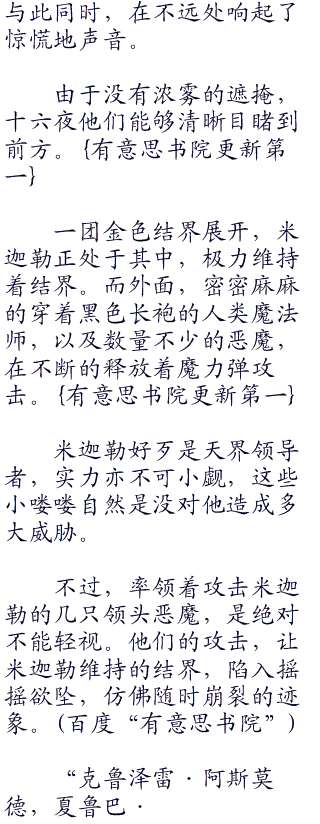 与此同时，在不远处响起了
惊慌地声音。
由于没有浓雾的遮掩，
十六夜他们能够清晰目睹到
前方。{有意思书院更新第
一}
一团金色结界展开，米
迦勒正处于其中，极力维持
着结界。而外面，密密麻麻
的穿着黑色长袍的人类魔法
师，以及数量不少的恶魔，
在不断的释放着魔力弹攻
击。{有意思书院更新第一}
米迦勒好歹是天界领导
者，实力亦不可小觑，这些
小喽喽自然是没对他造成多
大威胁。
不过，率领着攻击米迦
勒的几只领头恶魔，是绝对
不能轻视。他们的攻击，让
米迦勒维持的结界，陷入摇
摇欲坠，仿佛随时崩裂的迹
象。(百度“有意思书院”)
“克鲁泽雷·阿斯莫
德，夏鲁巴·